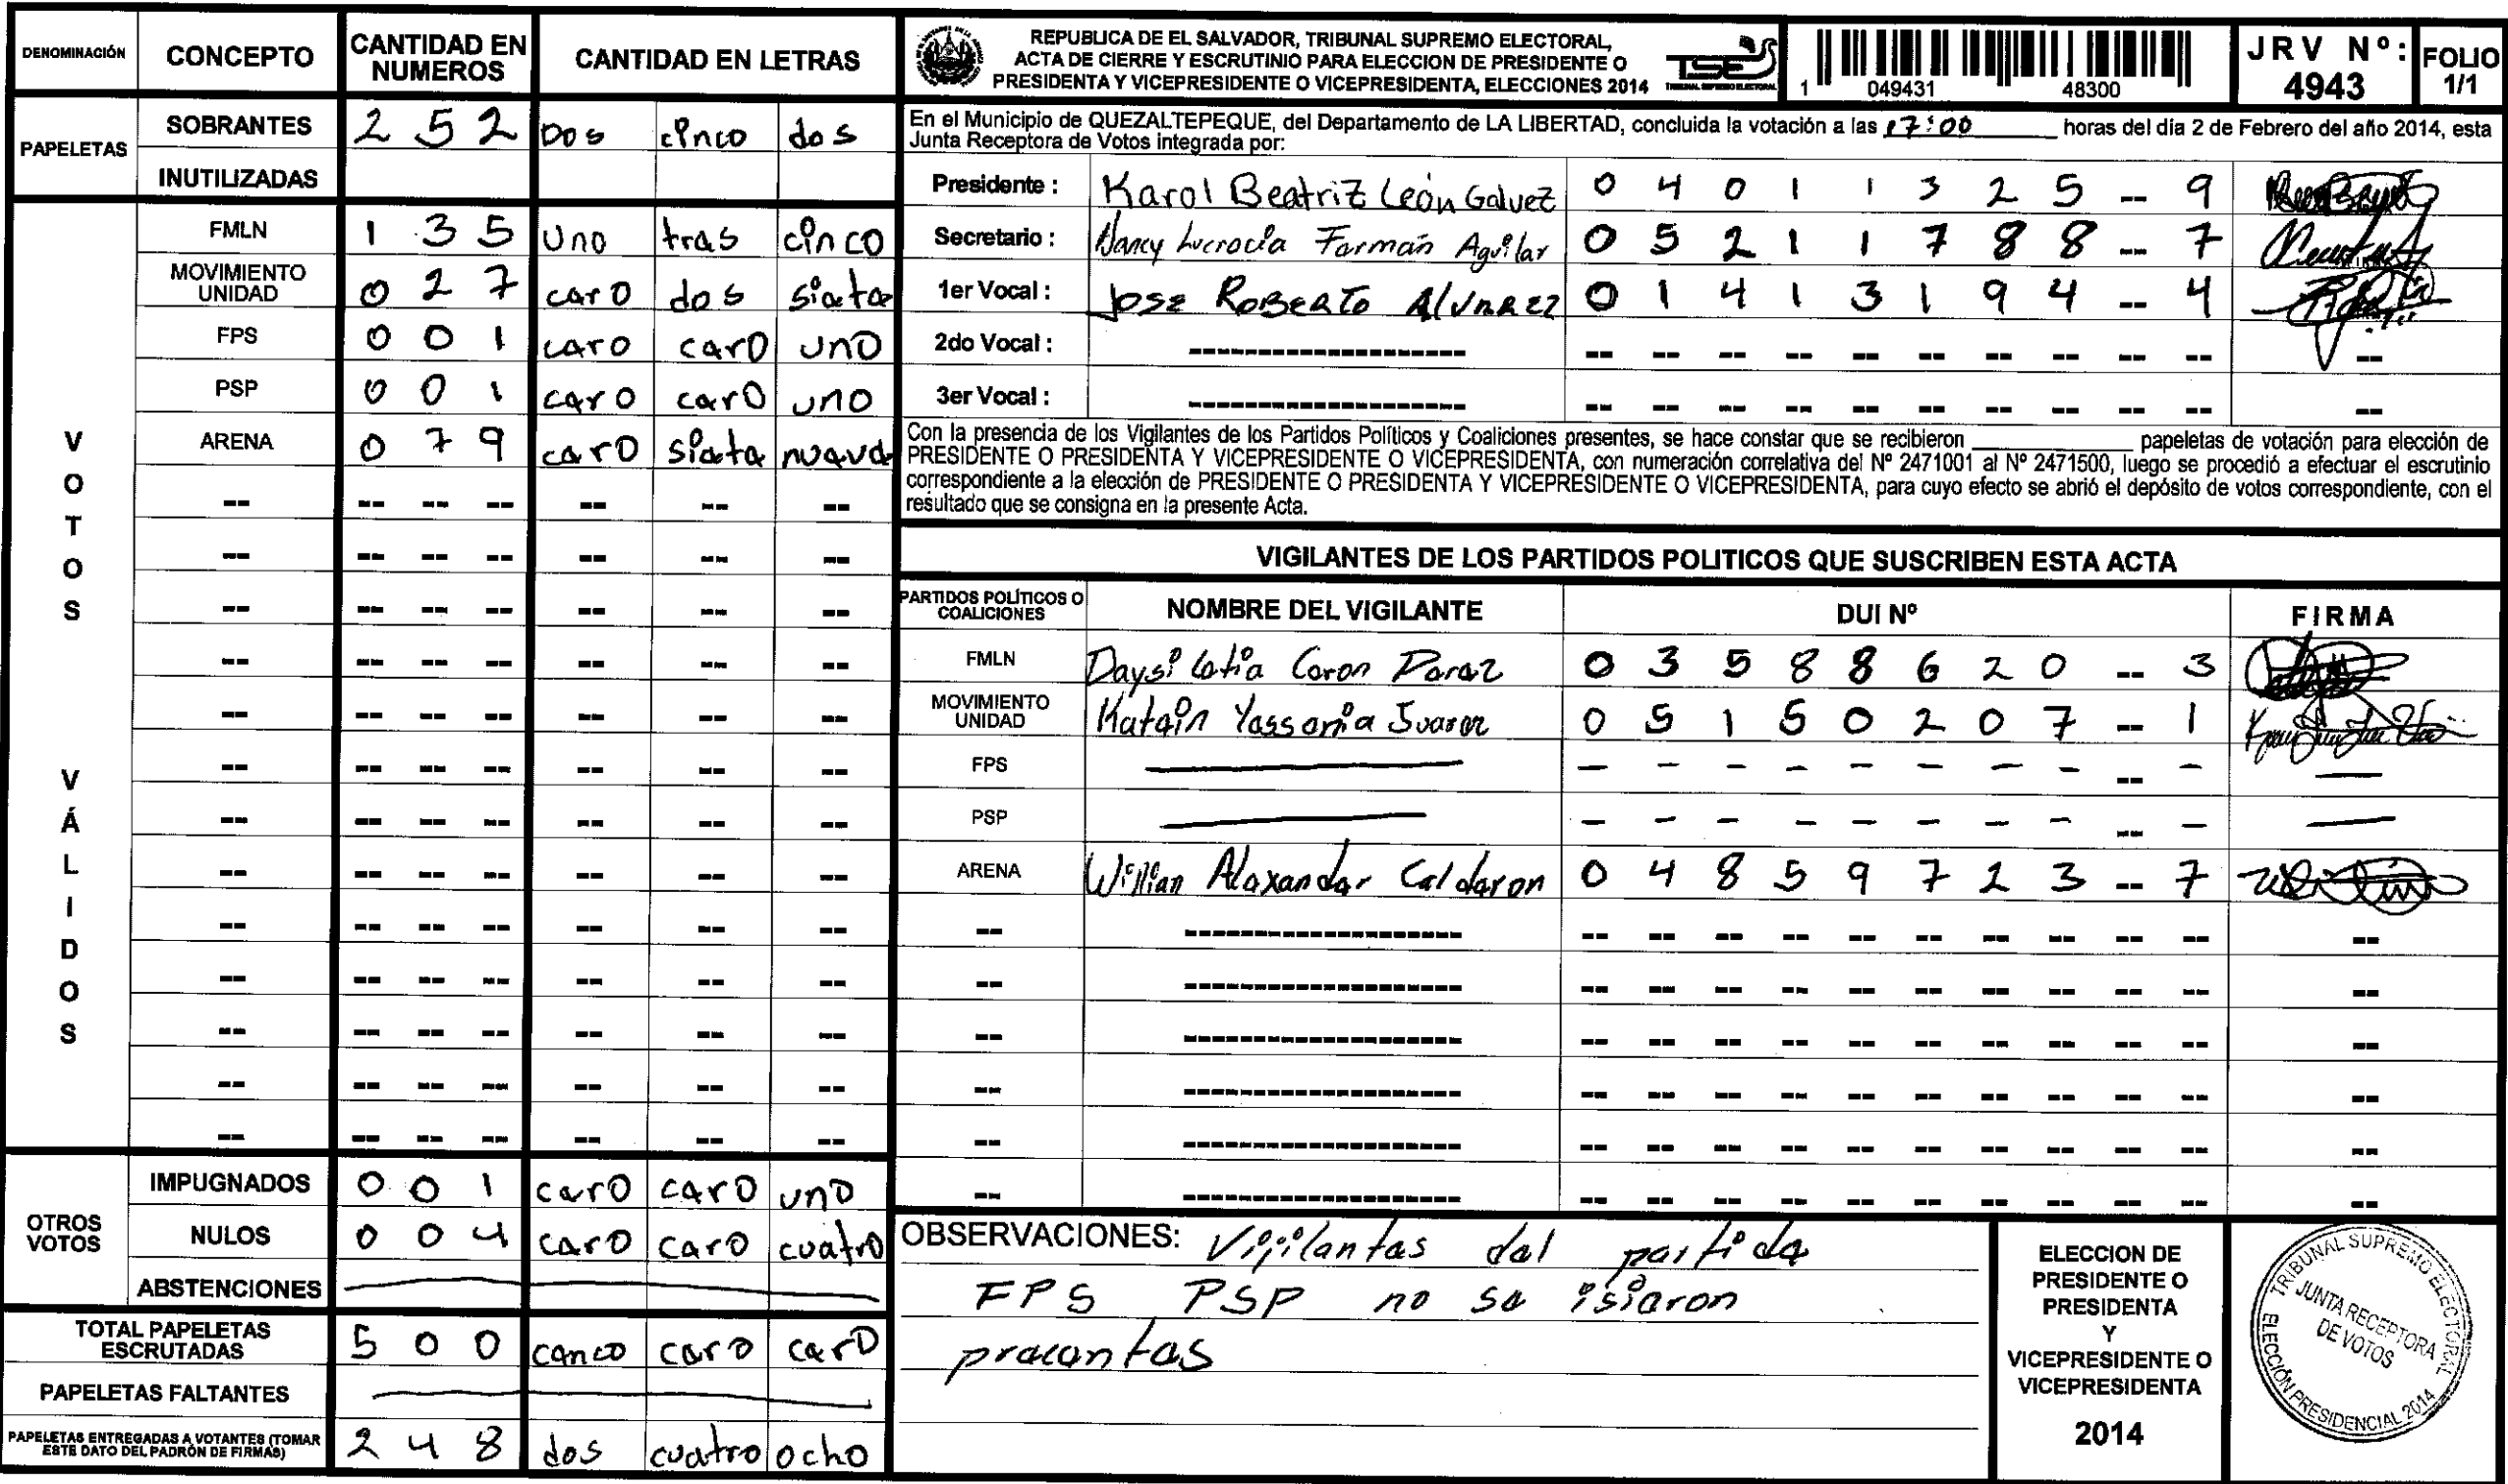 DENOMINACIÓN CONCEPTO CANTIDAD EN NUMEROS CANTIDAD EN LETRAS
PAPELETAS
SOBRANTES 2 5 2 Dos cinco dos
INUTILIZADAS
VOTOS VÁLIDOS
FMLN 1 3 5 Uno tras cinco
MOVIMIENTO UNIDAD 0 2 7 caro dos siata
FPS 0 0 1 caro caro uno
PSP 0 0 1 caro caro uno
ARENA 0 7 9 caro siata nuava
OTROS VOTOS
IMPUGNADOS 0 0 1 caro caro uno
NULOS 0 0 4 caro caro cuatro
ABSTENCIONES
TOTAL PAPELETAS ESCRUTADAS 5 0 0 canco caro caro
PAPELETAS FALTANTES
PAPELETAS ENTREGADAS A VOTANTES (TOMAR ESTE DATO DEL PADRÓN DE FIRMAS) 2 4 8 dos cuatro ocho
REPUBLICA DE EL SALVADOR, TRIBUNAL SUPREMO ELECTORAL,
ACTA DE CIERRE Y ESCRUTINIO PARA ELECCION DE PRESIDENTE O
PRESIDENTA Y VICEPRESIDENTE O VICEPRESIDENTA, ELECCIONES 2014
TSE
TRIBUNAL SUPREMO ELECTORAL
1 049431 48300
JRV Nº: 4943
FOLIO 1/1
En el Municipio de QUEZALTEPEQUE, del Departamento de LA LIBERTAD, concluida la votación a las 17:00 horas del día 2 de Febrero del año 2014, esta
Junta Receptora de Votos integrada por:
Presidente : Karol Beatriz León Galvez 0 4 0 1 1 3 2 5 -- 9
Secretario : Nancy Lucrocia Farmán Aguilar 0 5 2 1 1 7 8 8 -- 7
1er Vocal : Jose Roberto Alvarez 0 1 4 1 3 1 9 4 -- 4
2do Vocal :
3er Vocal :
Con la presencia de los Vigilantes de los Partidos Políticos y Coaliciones presentes, se hace constar que se recibieron ________ papeletas de votación para elección de
PRESIDENTE O PRESIDENTA Y VICEPRESIDENTE O VICEPRESIDENTA, con numeración correlativa del Nº 2471001 al Nº 2471500, luego se procedió a efectuar el escrutinio
correspondiente a la elección de PRESIDENTE O PRESIDENTA Y VICEPRESIDENTE O VICEPRESIDENTA, para cuyo efecto se abrió el depósito de votos correspondiente, con el
resultado que se consigna en la presente Acta.
VIGILANTES DE LOS PARTIDOS POLITICOS QUE SUSCRIBEN ESTA ACTA
PARTIDOS POLÍTICOS O COALICIONES NOMBRE DEL VIGILANTE DUI Nº FIRMA
FMLN Daysi Latia Coron Paraz 0 3 5 8 8 6 2 0 -- 3
MOVIMIENTO UNIDAD Katain Yassania Suarez 0 5 1 5 0 2 0 7 -- 1
FPS
PSP
ARENA Willian Alaxandar Caldaron 0 4 8 5 9 7 2 3 -- 7
OBSERVACIONES: Vigilantas dal partida
FPS PSP no sa isiaron
pracantas
ELECCION DE
PRESIDENTE O
PRESIDENTA
Y
VICEPRESIDENTE O
VICEPRESIDENTA
2014
TRIBUNAL SUPREMO ELECTORAL
JUNTA RECEPTORA
DE VOTOS
ELECCIÓN PRESIDENCIAL 2014